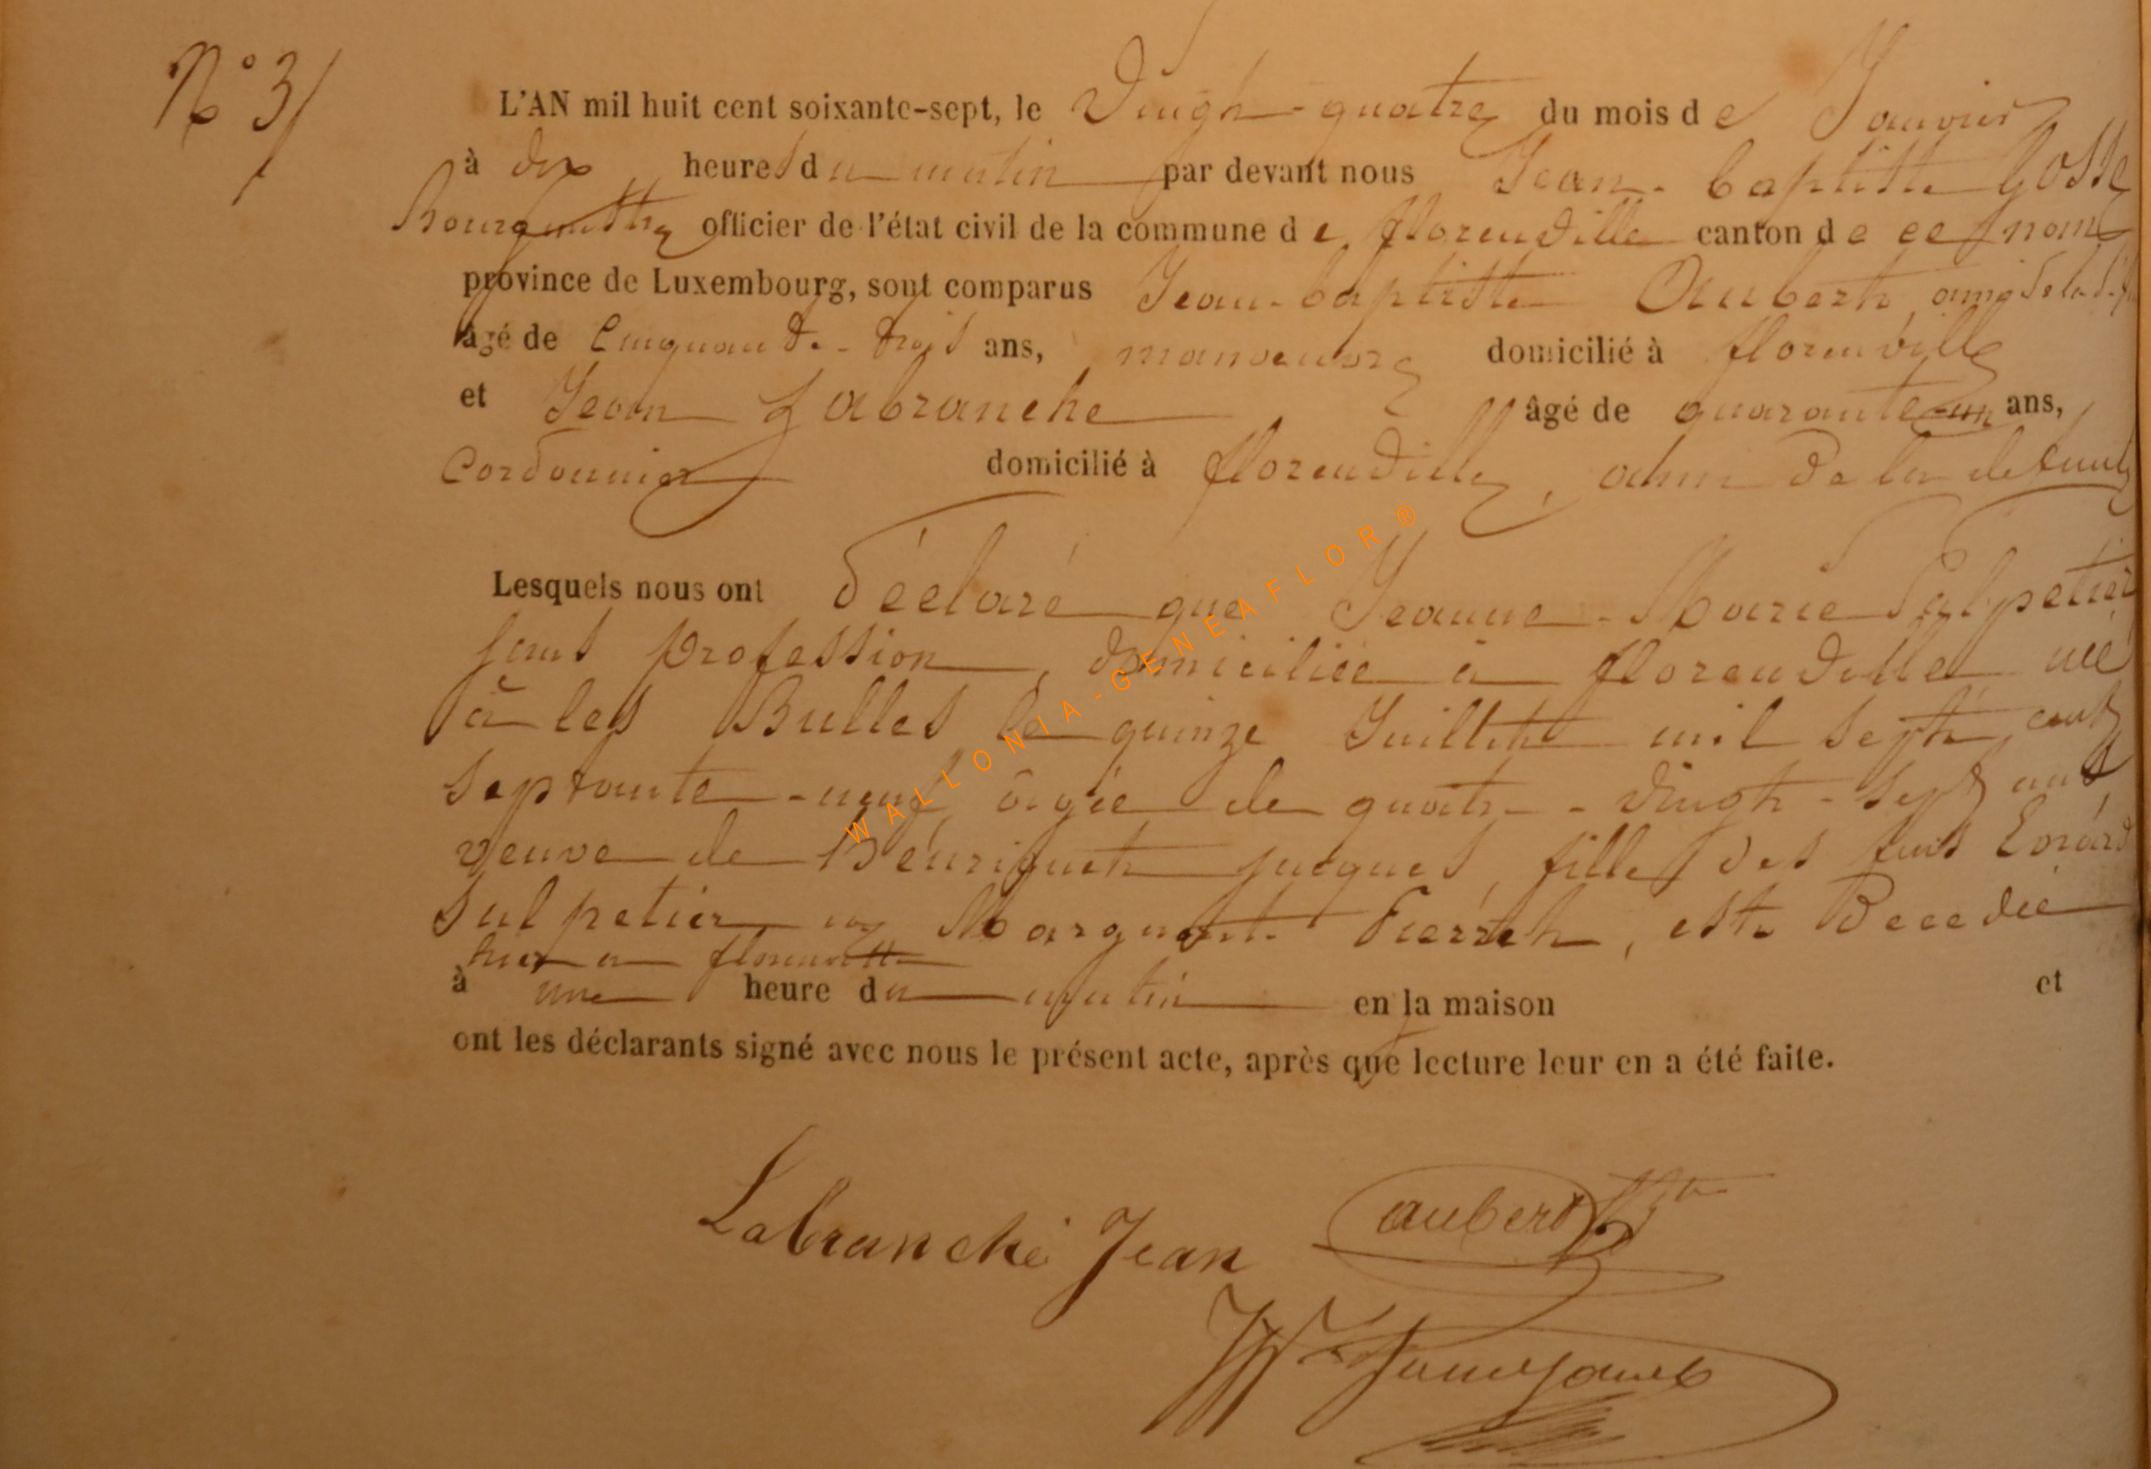 N° 3/
L'AN mil huit cent soixante-sept, le Vingt-quatre du mois de Janvier
à dix heures du matin par devant nous Jean-baptiste Gosse
Bourgmestre officier de l'état civil de la commune de florenville canton de ce nom
province de Luxembourg, sont comparus Jean-baptiste Aubert, ami de la
âgé de Cinquante-trois ans, manoeuvre domicilié à florenville
et Jean Labranche âgé de quarante-un ans,
Cordonnier domicilié à florenville, ami de la defunte
Lesquels nous ont déclaré que Jeanne-Marie Salpetier
sans profession, domiciliée à florenville née
à les Bulles le quinze Juillet mil sept cent
septante-neuf, âgée de quatre-vingt-sept ans,
veuve de Henriquet jacques, fille des feus
Salpetier et Marguerite, est Decedée
hier a florenville
à une heure du matin en la maison et
ont les déclarants signé avec nous le présent acte, après que lecture leur en a été faite.
Labranche Jean aubert
WALLONIA-GENEAFLOR®